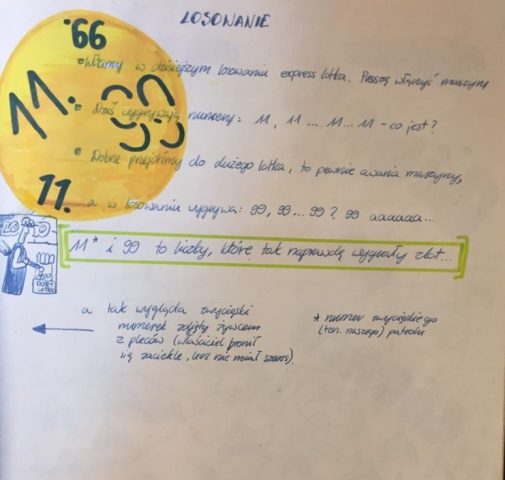 LOSOWANIE
'66
• Witamy w dzisiejszym losowaniu express lotka. Proszę włączyć maszyny
11. 99
• Dziś wygrywają numery: 11, 11 ... 11... 11 - co jest?
99
• Dobrze przejdźmy do dużego lotka, to pewnie awaria maszyny,
11.
a w losowaniu wygrywa: 99, 99 ... 99? 99 aaaaaaa...
11* i 99 to liczby, które tak naprawdę wygrały zlot...
a tak wygląda zwycięski
numerek zdjęty żywcem
z pleców (właściciel bronił
się zaciekle, lecz nie miał szans).
* numer zwycięskiego
(tzn. naszego) patrolu